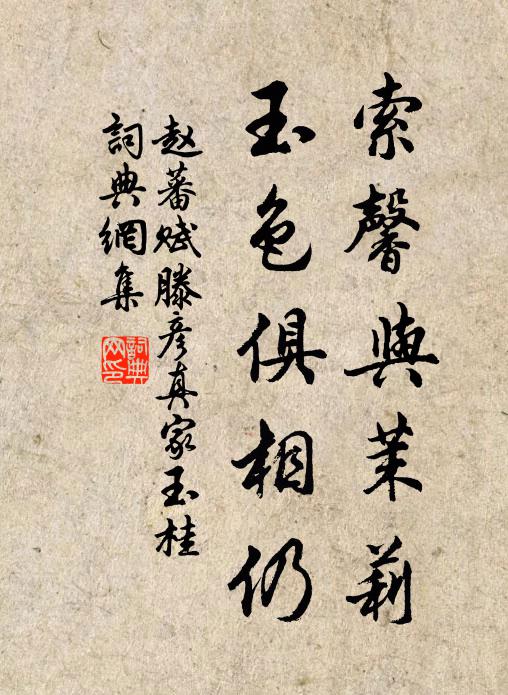 索馨與茉莉
玉色俱相仍
赵蕃賦滕彦真家玉桂
詞典網集
詞典网印